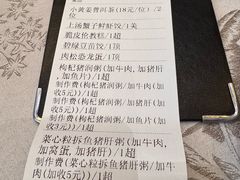 小黄姜普洱茶(18元/位)/2
位
上汤蟹子鲜虾饺/1美
脆皮烧鹅/1超
碧绿豆苗饺/1顶
肉松恐龙蛋/1顶
枸杞猪润粥(加牛肉,加猪肝
,加鱼片)/1超
制作费(枸杞猪润粥/加牛肉(加
收5元))/1超
制作费(枸杞猪润粥/加猪肝(加
收5元))/1超
制作费(枸杞猪润粥/加鱼片(加
收5元))/1超
菜心粒拆鱼猪肝粥(加牛肉,
加窝蛋,加猪肝)/1超
制作费(菜心粒拆鱼猪肝粥/加牛
肉(加收5元))/1超